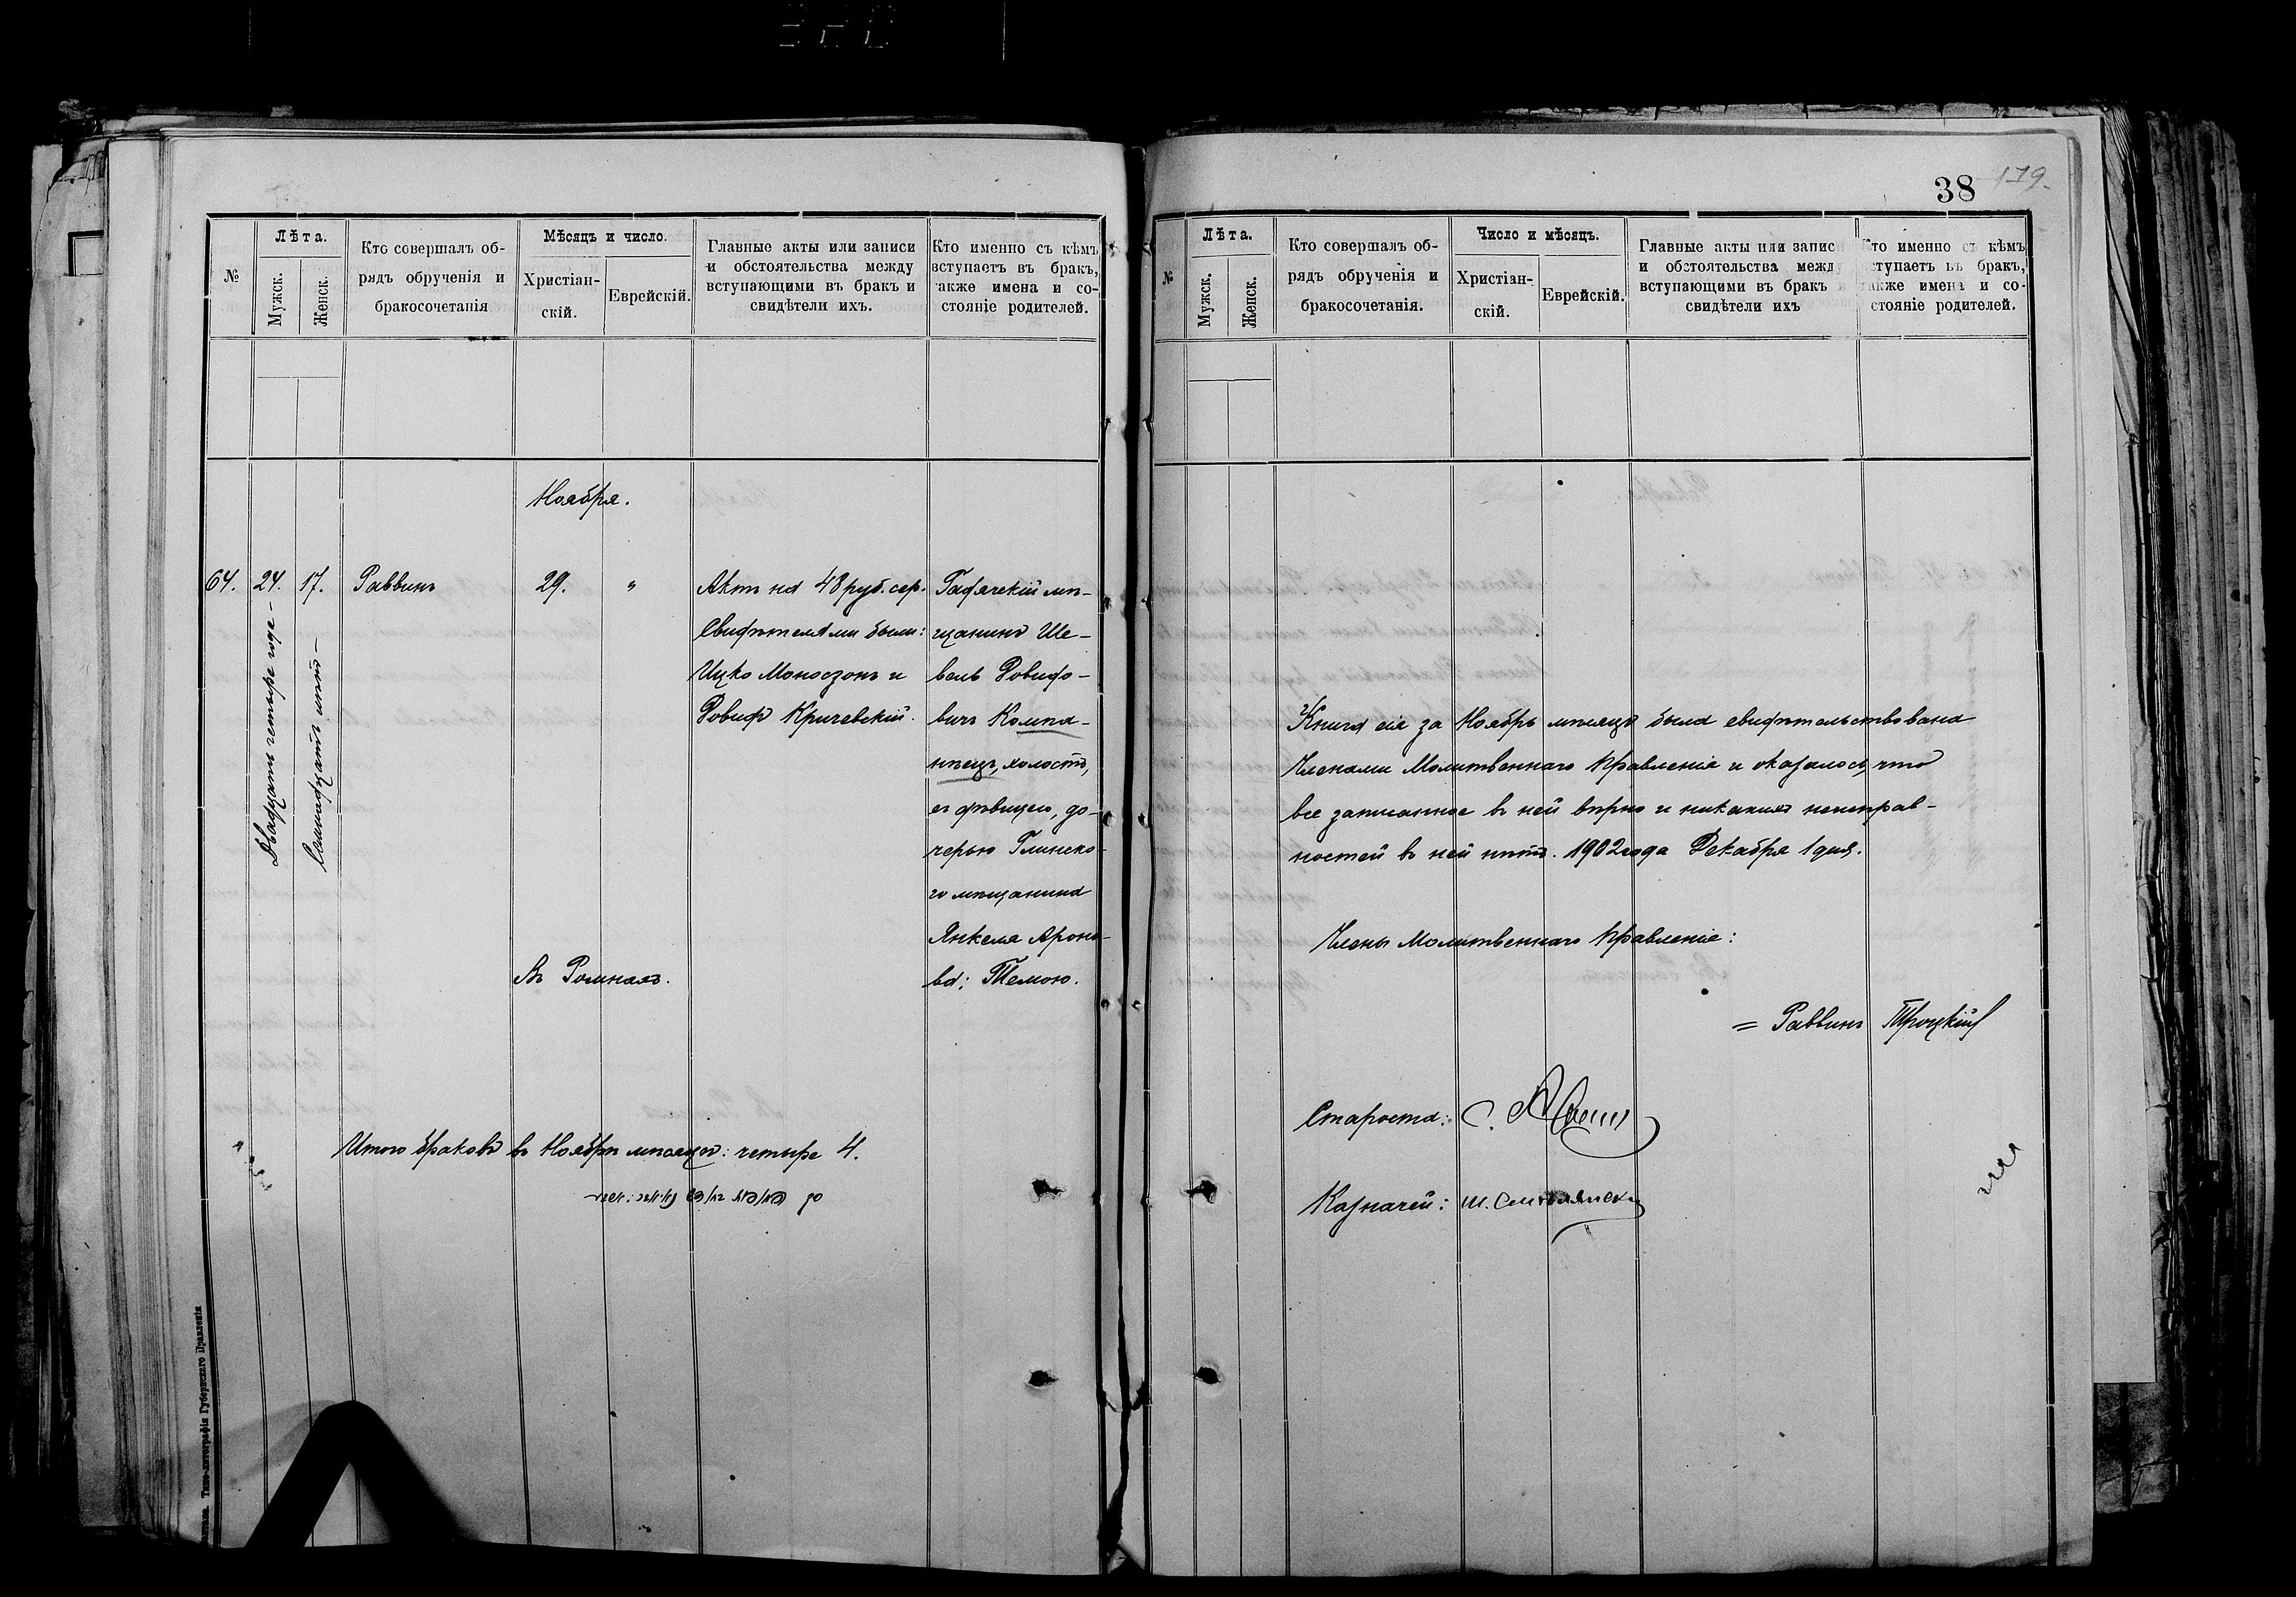 38 179.
№
Лѣта.
Мужск.
Женск.
Кто совершалъ об-
рядъ обрученія и
бракосочетанія
Мѣсяцъ и число.
Христіан-
скій.
Еврейскій.
Главные акты или записи
и обстоятельства между
вступающими въ бракъ и
свидѣтели ихъ.
Кто именно съ кѣмъ
вступаетъ въ бракъ,
также имена и со-
стояніе родителей.
Ноября.
64. 24. 17. Раввинъ 29. "
Двадцать четыре года –
Семнадцать лѣтъ –
Актъ на 48 руб. сер.
Свидѣтелями были:
Ицко Моносзонъ и
Довидъ Кричевскій.
Гадячскій мѣ-
щанинъ Ше-
вель Довидо-
вичъ Компа-
нѣецъ, холостъ,
съ дѣвицею, до-
черью Глинска-
го мѣщанина
ЯнкеляАроно-
ва: Темою.
Въ Ромнахъ.
Итого браковъ въ Ноябрѣ мѣсяцѣ: четыре 4.
Типо-литографія Губернскаго Правленія
№
Лѣта.
Мужск.
Женск.
Кто совершалъ об-
рядъ обрученія и
бракосочетанія.
Число и мѣсяцъ.
Христіан-
скій.
Еврейскій.
Главные акты или записи
и обстоятельства между
вступающими въ бракъ и
свидѣтели ихъ
Кто именно съ кѣмъ
вступаетъ въ бракъ,
также имена и со-
стояніе родителей.
Книга сія за Ноябрь мѣсяцъ была свидѣтельствована
Членами Молитвеннаго Правленія и оказалось, что
все записанное въ ней вѣрно и никакихъ неисправ-
ностей въ ней нѣтъ. 1902 года Декабря 1 дня.
Члены Молитвеннаго Правленія:
= Раввинъ Троцкій
Староста: С.
Казначей: Ш.